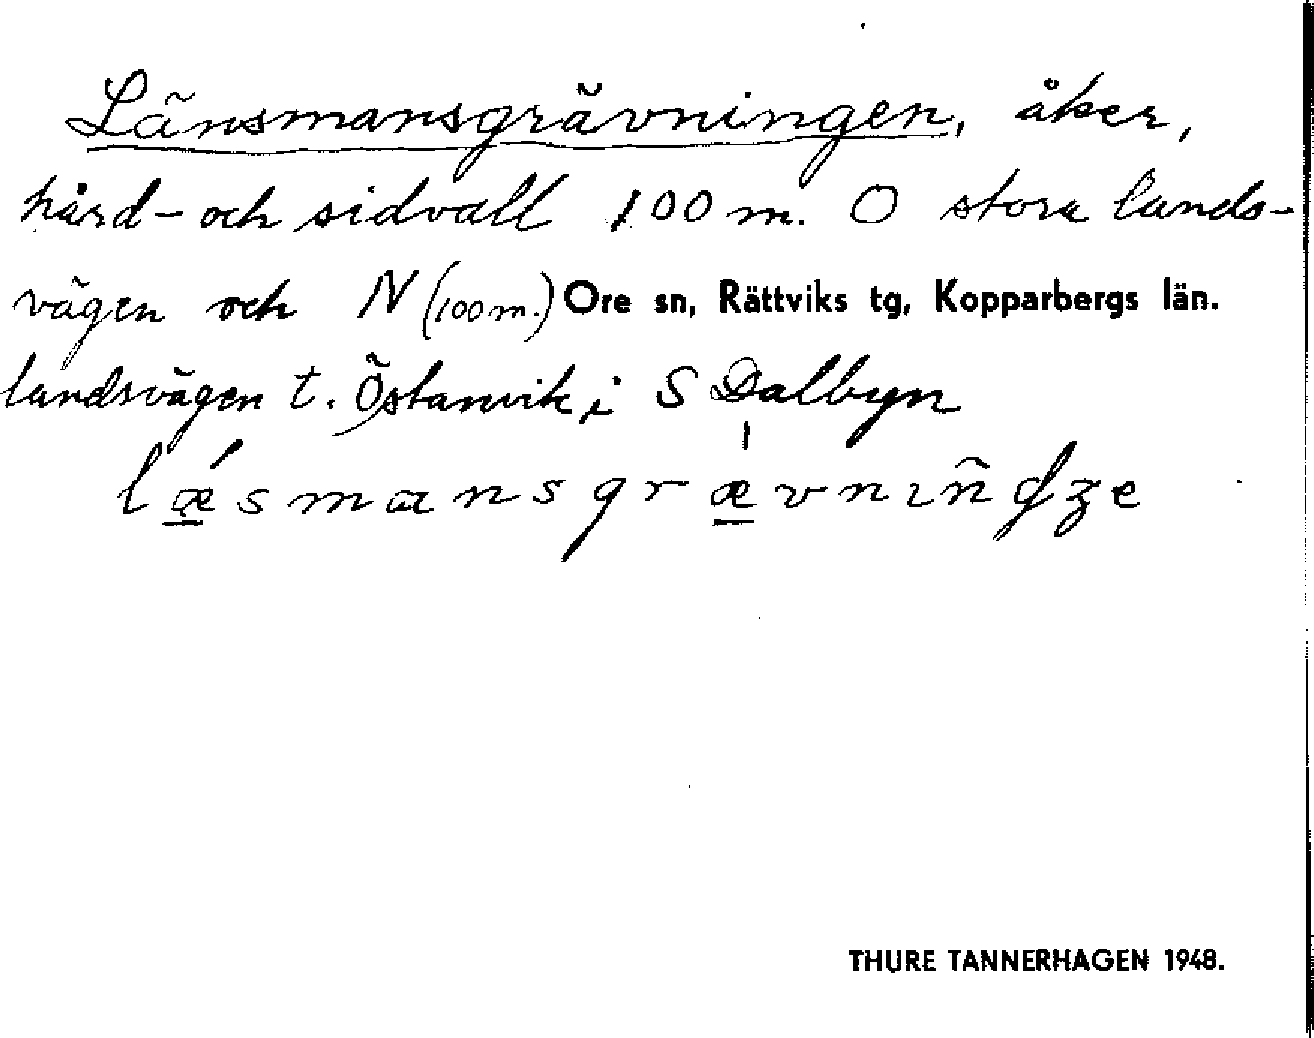 Länsmansgrävningen, åker,
hård- och sidvall 100 m. O stora lands-
vägen och N (100 m.) Ore sn, Rättviks tg, Kopparbergs län.
landsvägen t. Östanvik i S Dalbyn
lǽ̲smansgræ̲̍vnıñʤe
THURE TANNERHAGEN 1948.